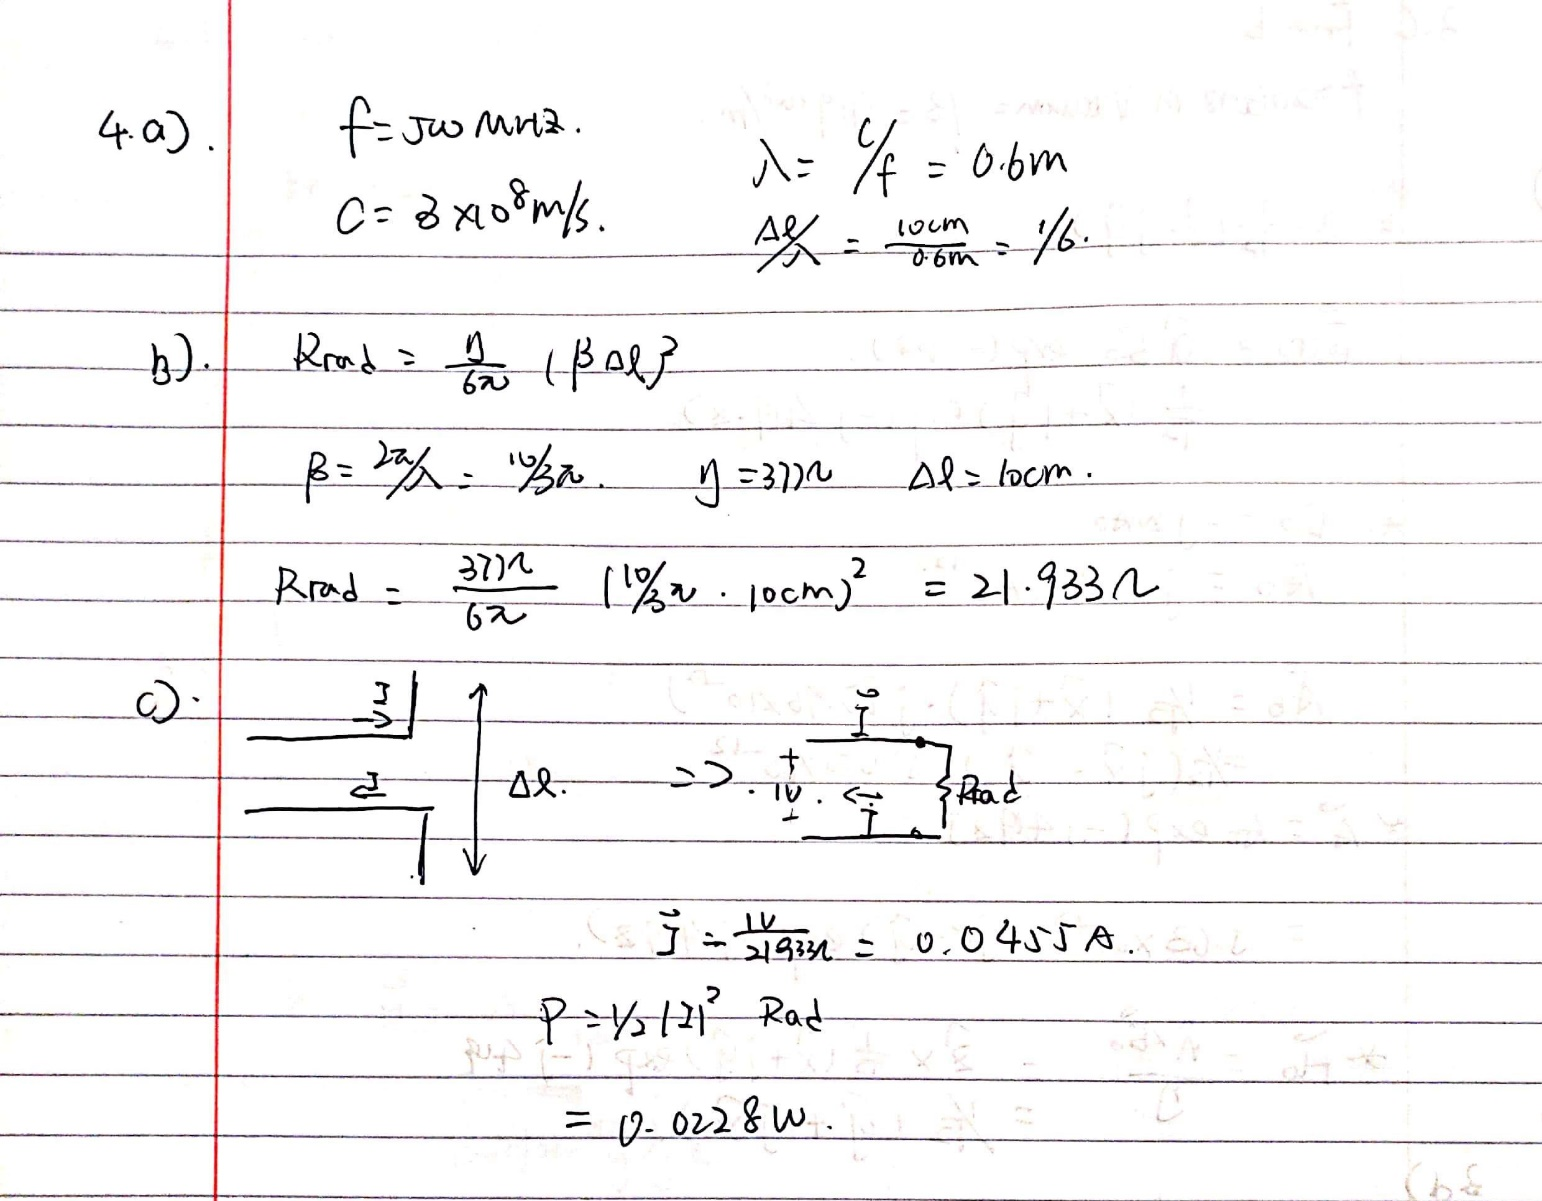 4.a). f = 500 MHz.
λ = c/f = 0.6m
C = 3 ×10⁸ m/s.
Δl/λ = 10cm/0.6m = 1/6.
b). Rrad = η/6π (βΔl)²
β = 2π/λ = 10/3π. η = 377Ω Δl = 10cm.
Rrad = 377Ω/6π (10/3π · 10cm)² = 21.933Ω
c). I I Δl. => + 1V. - I I Rrad
I = 1V/21.933Ω = 0.0455A.
P = 1/2 |I|² Rad
= 0.0228W.